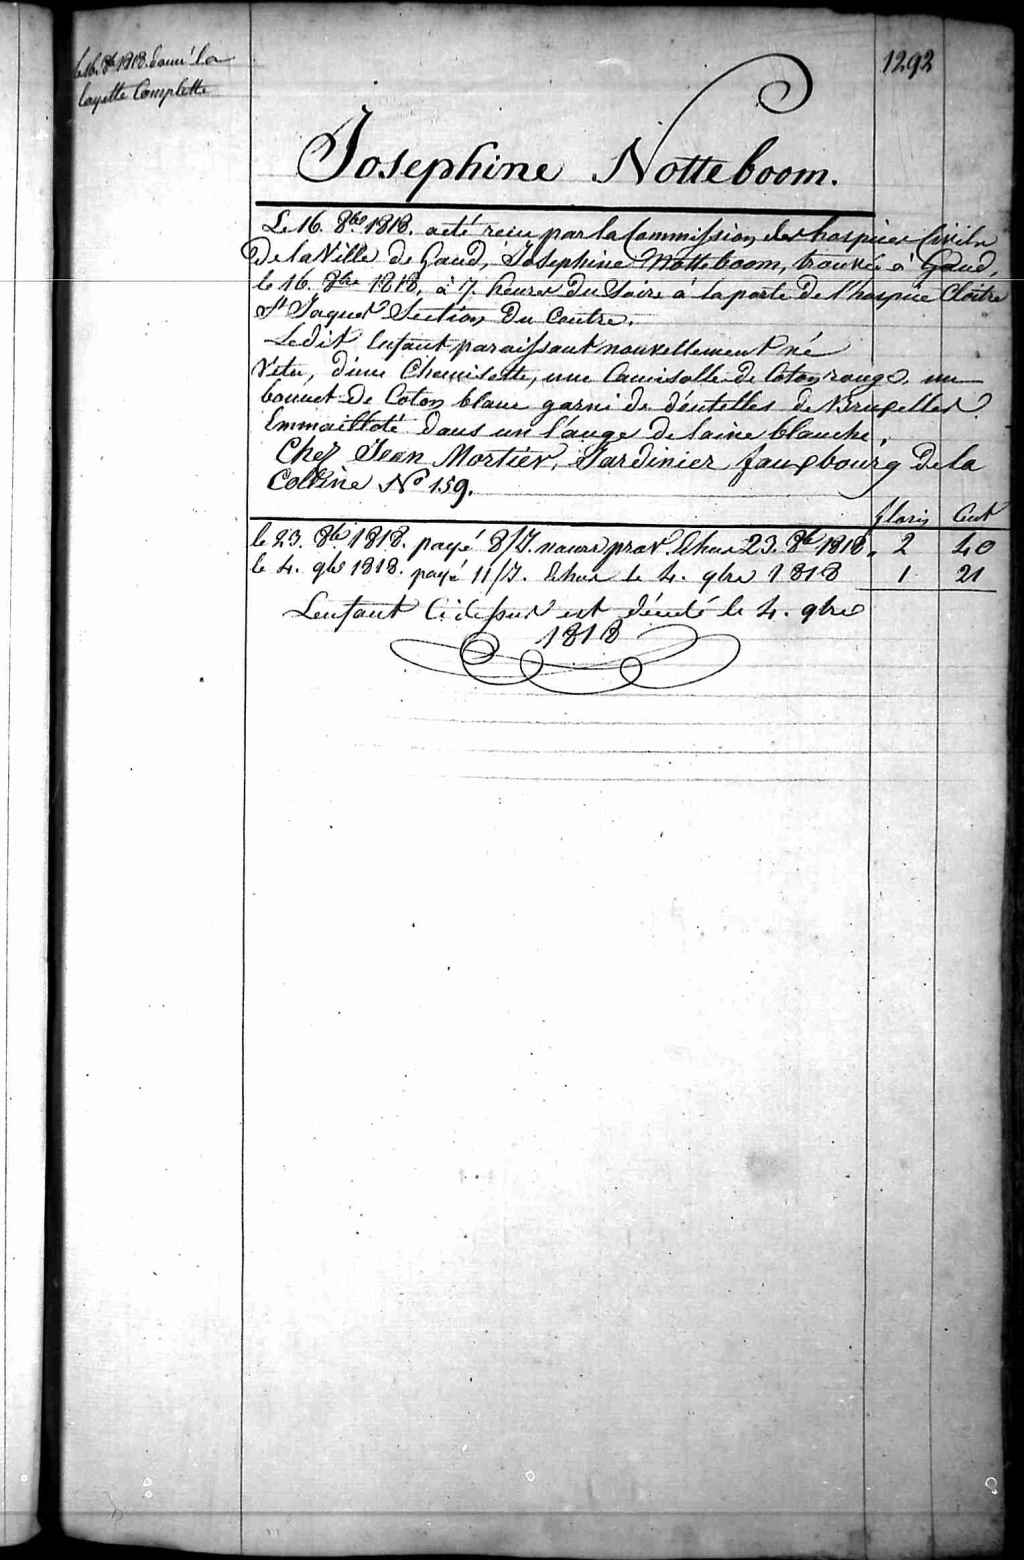 le 16. 8bre 1818. donné la
layette Complette
1292
Josephine Notteboom.
Le 16. 8bre 1818. a été reçu par la Commission des hospices Civils
De la Ville de Gand, Josephine Notteboom, trouvée à Gand,
le 16. 8bre 1818, à 7. heures du Soire à la porte de l'hospice Cloître
St Jaques Section du Centre.
Ledit Enfant paraissant nouvellement né
Vétu, d'une Chemisette, une Camisolle de Coton rouge, un
bonnet de Coton blanc garni de déntelles de Bruxelles.
Emmailloté dans un l'ange de laine blanche.
Chez Jean Mortier, Jardinier fauxbourg de la
Colline No 159.
floris Cent
le 23. 8bre 1818. payé 8/J. nourr prov. Echus 23. 8bre 1818. 2 40
le 4. 9bre 1818. payé 11/J. Echus le 4. 9bre 1818 1 21
L'enfant Cidessus est décédé le 4. 9bre
1818